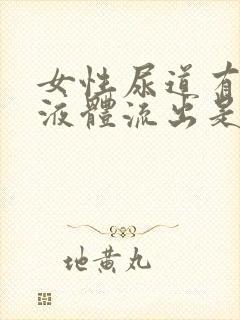 女性尿道有
液體流出是
地黄丸